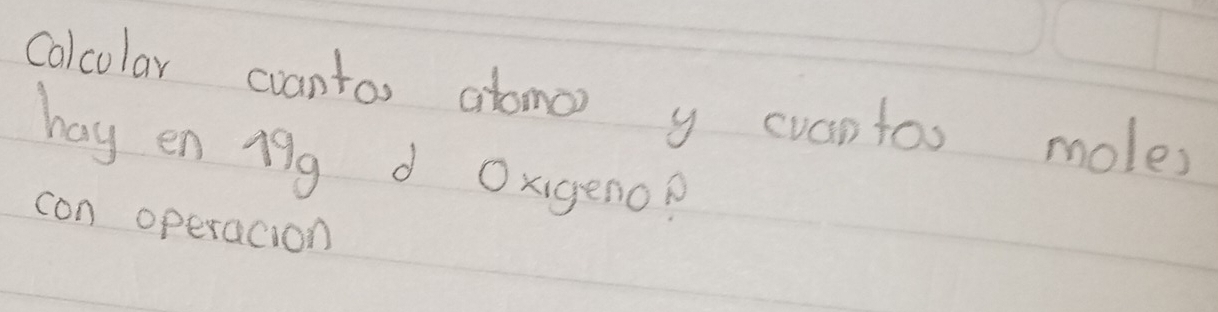 Calcular cuantos atomos y cuantos moles
hay en 19g d Oxigeno?
con operacion